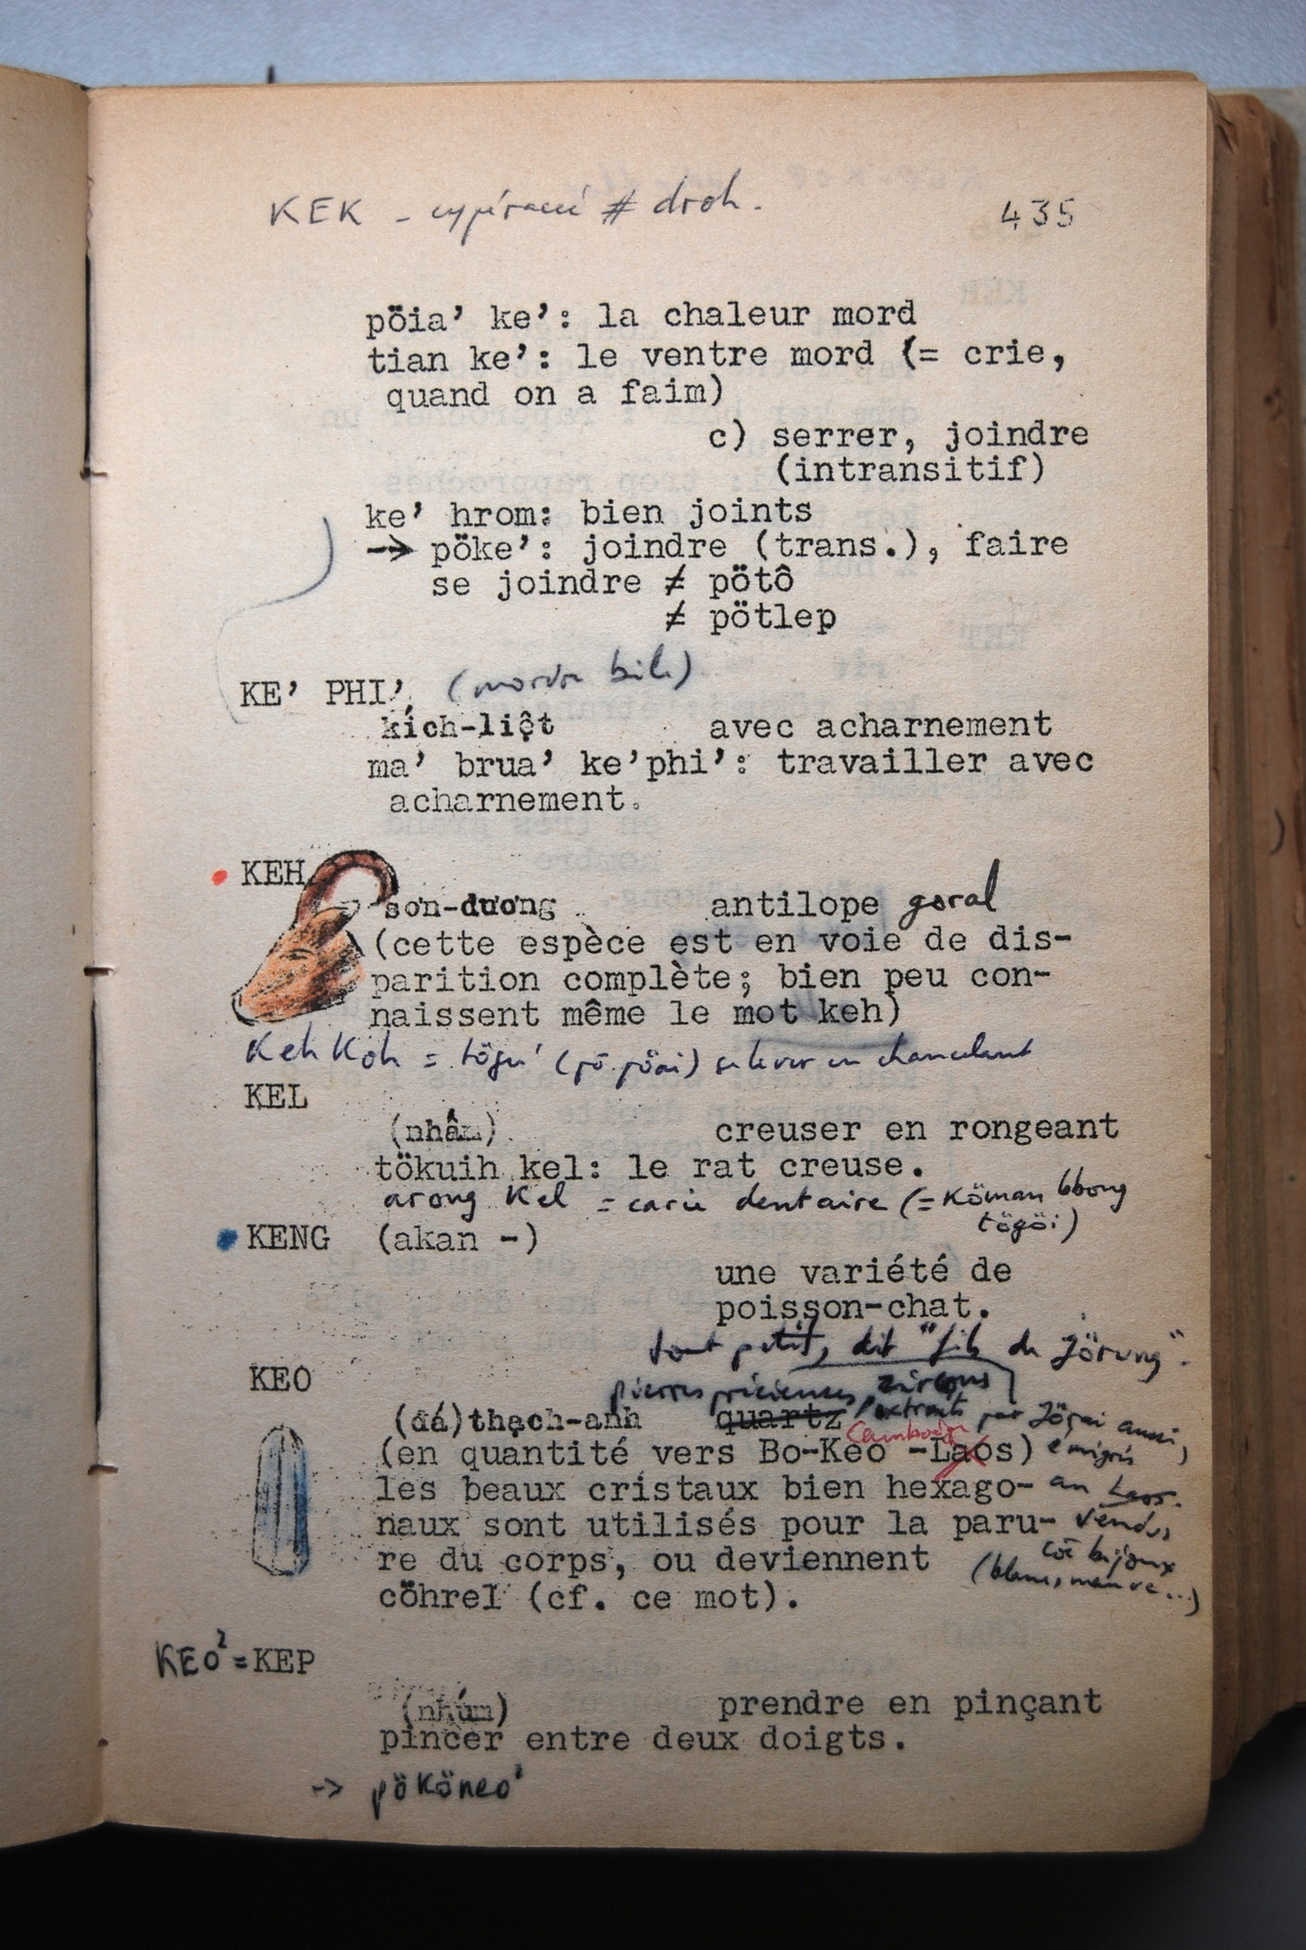 KEK - # droh.
435
pöia’ ke’: la chaleur mord
tian ke’: le ventre mord (= crie,
quand on a faim)
c) serrer, joindre
(intransitif)
ke’ hrom: bien joints
→ pöke’: joindre (trans.), faire
se joindre ≠ pötô
≠ pötlep
KE’ PHI’ (mordre bile)
kích-liệt avec acharnement
ma’ brua’ ke’phi’: travailler avec
acharnement.
KEH
sơn-dương antilope goral
(cette espèce est en voie de dis-
parition complète; bien peu con-
naissent même le mot keh)
Keh Koh = se lever en chancelant
KEL
(nhấm) creuser en rongeant
tökuih kel: le rat creuse.
arong Kel = carie dentaire (= Köman bbong
tögöi)
KENG (akan -)
une variété de
poisson-chat.
tout petit, dit "fils de Jörung".
KEO
pierres précieuses, zircons
(đá)thạch-anh quartz extraits par Jörai aussi,
(en quantité vers Bo-Keo -Laos) Cambodge émigrés
les beaux cristaux bien hexago- au Laos.
naux sont utilisés pour la paru- vendus
re du corps, ou deviennent bijoux
cöhrel (cf. ce mot). (blanc, mauve...)
KEO² = KEP
(nhúm) prendre en pinçant
pincer entre deux doigts.
-> pököneo’